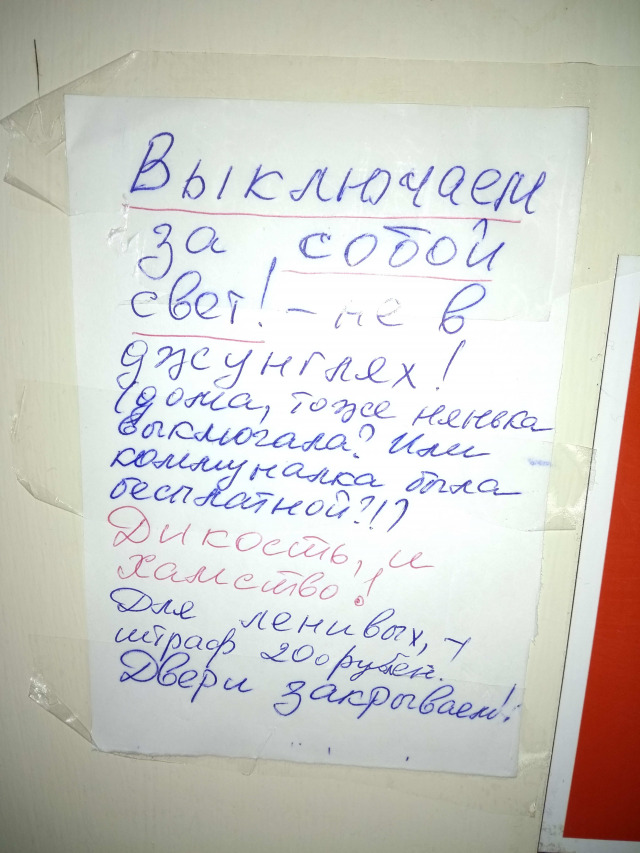 Выключаем
за собой
свет! - не в
джунглях!
(дома, тоже нянька
выключала? Или
коммуналка была
бесплатной?!)
Дикость, и
хамство!
Для ленивых, -
штраф 200 рублей.
Двери закрываем!